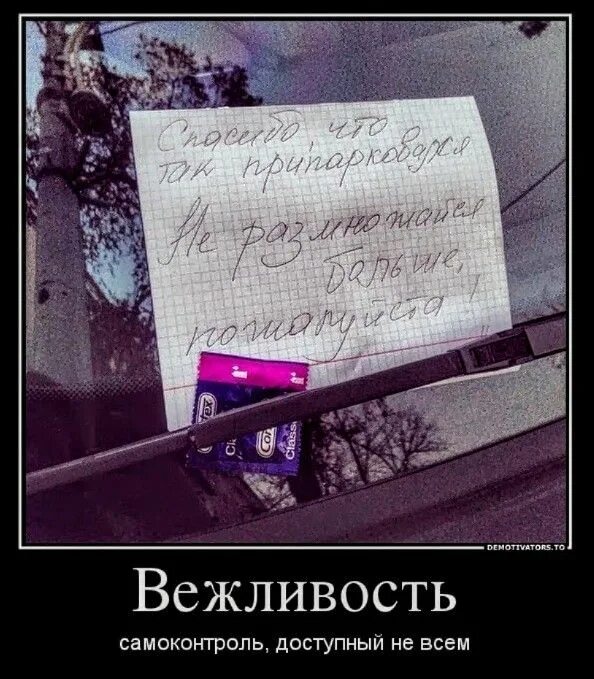 Спасибо, что
так припарковался
Не размножайся
больше,
пожалуйста!
Contex
Classic
Contex
Classic
DEMOTIVATORS.TO
Вежливость
самоконтроль, доступный не всем